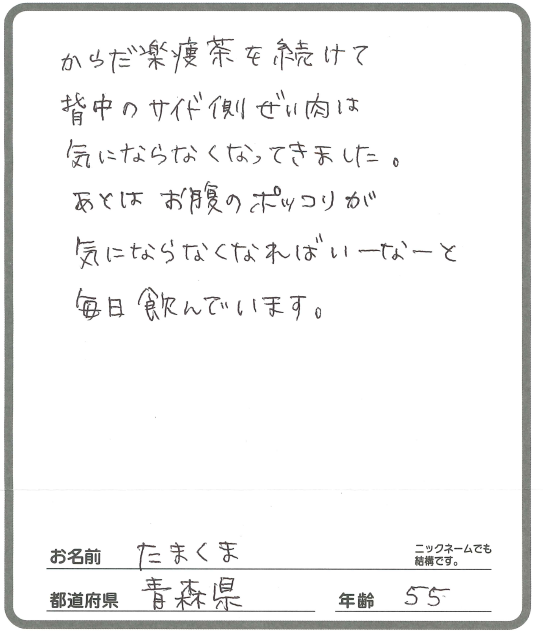 からだ楽痩茶を続けて
背中のサイド側ぜい肉は
気にならなくなってきました。
あとは お腹のポッコリが
気にならなくなればいーなーと
毎日飲んでいます。
お名前 たまくま ニックネームでも結構です。
都道府県 青森県 年齢 55